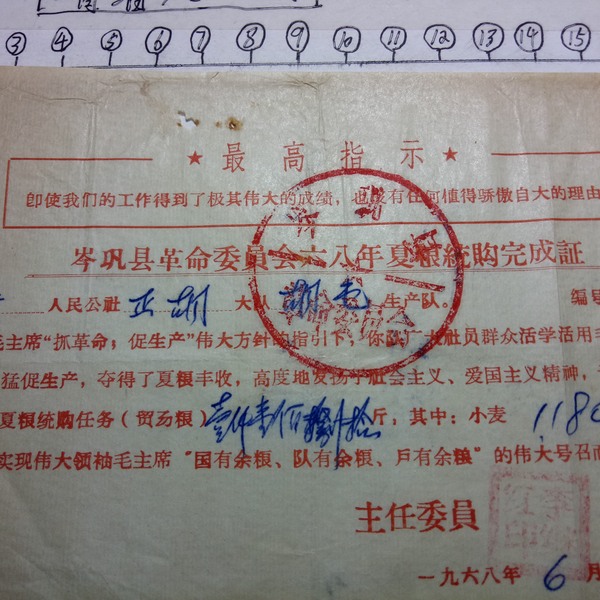 ③ ④ ⑤ ⑥ ⑦ ⑧ ⑨ ⑩ ⑪ ⑫ ⑬ ⑭ ⑮
★最高指示★
即使我们的工作得到了极其伟大的成绩,也没有任何值得骄傲自大的理由
岑巩县革命委員会六八年夏粮統购完成証
人民公社 正胡 大队 胡屯 生产队。 编号
毛主席“抓革命;促生产”伟大方針的指引下,你队广大社員群众活学活用毛
猛促生产,夺得了夏粮丰收,高度地发扬了社会主义、爱国主义精神,
夏粮统购任务(贸易粮)壹仟壹佰捌拾斤,其中:小麦 1180
实现伟大领袖毛主席“国有余粮、队有余粮、戶有余粮”的伟大号召而
主任委員
一九六八年 6 月